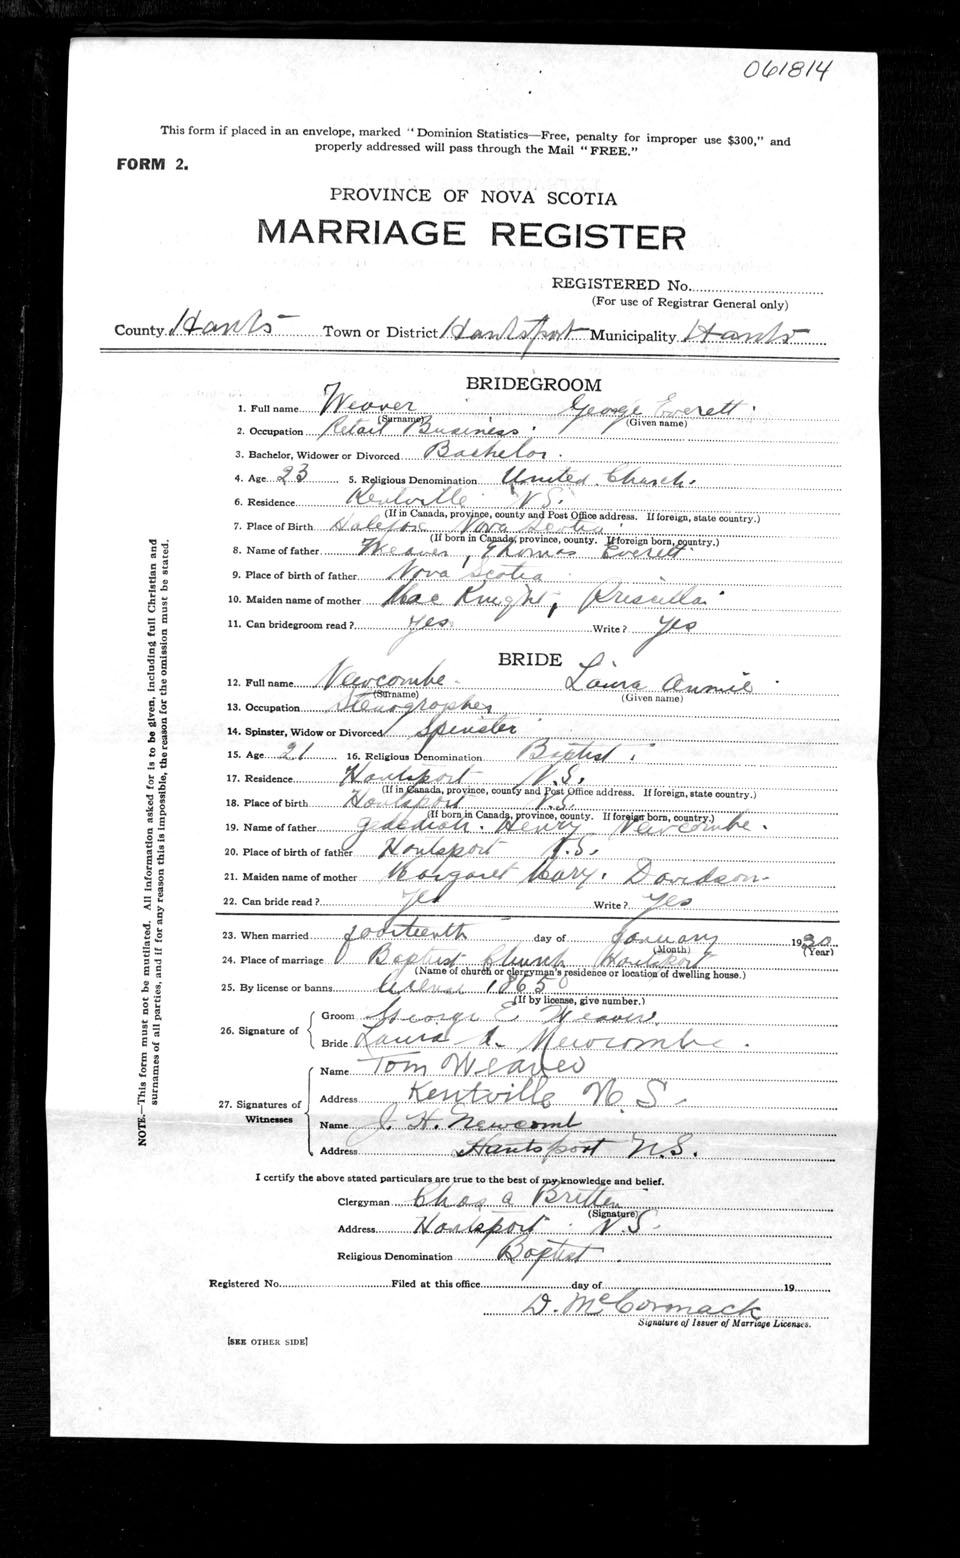 061814
This form if placed in an envelope, marked "Dominion Statistics—Free, penalty for improper use $300," and
properly addressed will pass through the Mail "FREE."
FORM 2.
PROVINCE OF NOVA SCOTIA
MARRIAGE REGISTER
REGISTERED No.
(For use of Registrar General only)
County Hants Town or District Hantsport Municipality Hants
BRIDEGROOM
1. Full name Weaver George Everett
(Surname) (Given name)
2. Occupation Retail Business
3. Bachelor, Widower or Divorced Bachelor
4. Age 23 5. Religious Denomination United Church
6. Residence Kentville N.S.
(If in Canada, province, county and Post Office address. If foreign, state country.)
7. Place of Birth Halifax Nova Scotia
(If born in Canada, province, county. If foreign born, country.)
8. Name of father Weaver, Thomas Everett
9. Place of birth of father Nova Scotia
10. Maiden name of mother Mac Knight, Priscilla
11. Can bridegroom read? Yes Write? Yes
BRIDE
12. Full name Newcombe Laura Annie
(Surname) (Given name)
13. Occupation Stenographer
14. Spinster, Widow or Divorced Spinster
15. Age 21 16. Religious Denomination Baptist
17. Residence Hantsport N.S.
(If in Canada, province, county and Post Office address. If foreign, state country.)
18. Place of birth Hantsport N.S.
(If born in Canada, province, county. If foreign born, country.)
19. Name of father Gedediah Henry Newcombe
20. Place of birth of father Hantsport N.S.
21. Maiden name of mother Margaret Mary Davidson
22. Can bride read? Yes Write? Yes
23. When married fourteenth day of January 1930
(Month) (Year)
24. Place of marriage Baptist Church Hantsport
(Name of church or clergyman's residence or location of dwelling house.)
25. By license or banns License 18650
(If by license, give number.)
26. Signature of
Groom George E Weaver
Bride Laura A. Newcombe
27. Signatures of Witnesses
Name Tom Weaver
Address Kentville N.S.
Name J. H. Newcomb
Address Hantsport N.S.
I certify the above stated particulars are true to the best of my knowledge and belief.
Clergyman Chas A Britten
(Signature)
Address Hantsport N.S.
Religious Denomination Baptist
Registered No. Filed at this office day of 19
D. McCormack
Signature of Issuer of Marriage Licenses.
[SEE OTHER SIDE]
NOTE.—This form must not be mutilated. All information asked for is to be given, including full Christian and
surnames of all parties, and if for any reason this is impossible, the reason for the omission must be stated.